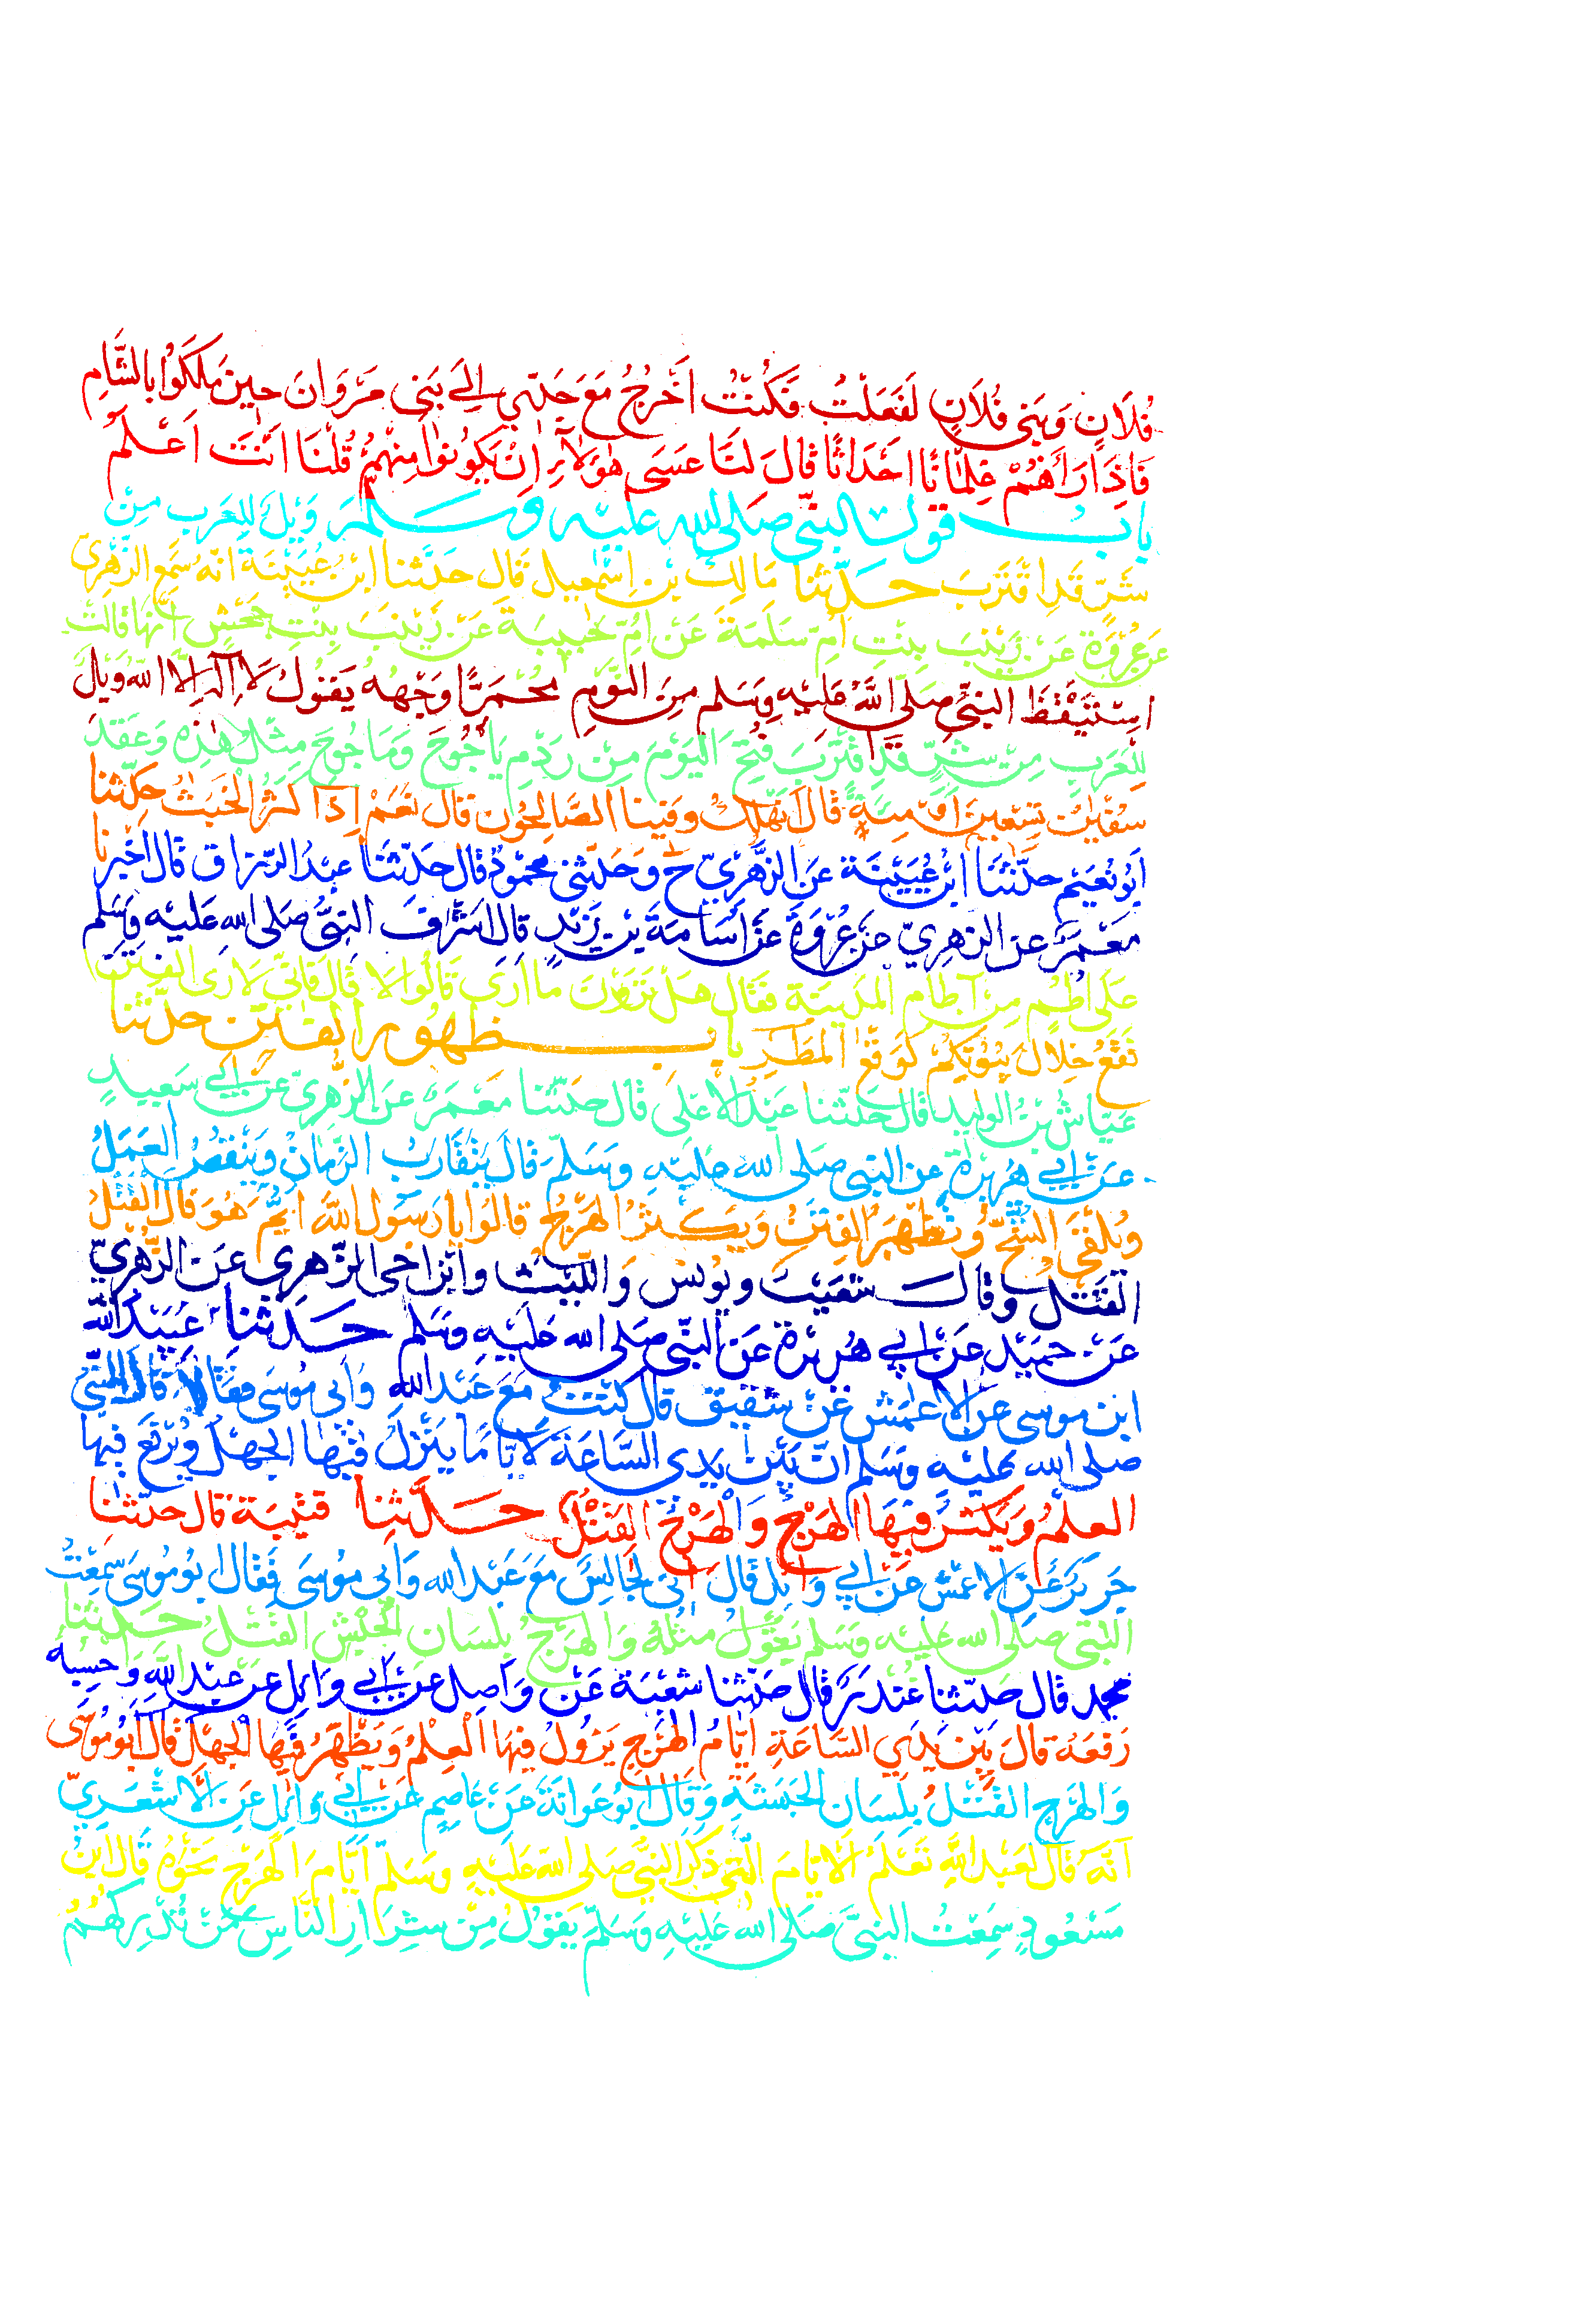 فُلَانٍ وَبَنِي فُلَانٍ لَفَعَلْتُ فَكُنْتُ اَخْرُجُ مَعَ جَدّي اِلَى بَنِي مَرْوَانَ حِينَ مَلَكُوْا بِالشَّامِ
فَاِذَا رَاَهُمْ غِلْمَانًا احَدَاثًا قَالَ لَنَا عَسَى هٰؤلَاءِ اِنْ يَكُونُوا مِنْهُمْ قُلْنَا انْتَ اَعْلَمُ
بابُ قول النبيّ صلى الله عليه وَسَلمَ وَيْلٌ لِلْعَرَب مِنْ
شَرٍّ قَدِ اقْتَرَبَ حدّثنا مَالِكُ بْن اِسْمٰعِيل قَال حَدَّثنا ابْنُ عُيَيْنَةَ انّهُ سَمعَ الزُّهْرِيّ
عَن عُرْوَةَ عَنْ زَيْنَب بِنْت اُمّ سَلَمَةَ عَنْ اُمّ حَبِيبَةَ عَنْ زَيْنَبَ بِنْتِ جَحْشٍ اَنّهَا قَالَتْ
اسْتَيْقَظَ النبيُّ صَلّى اللهُ عَليْهِ وَسَلم مِنَ النَّوْمِ مُحْمَرًّا وَجْهُهُ يَقُولُ لَا اِلٰهَ اِلَّا الله وَيْلٌ
لِلْعَرَبِ مِنْ شَرٍّ قَدِ قْتَرَبَ فُتِحَ اليَوْمَ مِنْ رَدْمِ يَاْجُوجَ وَمَاجُوجَ مِثْلُ هٰذِهِ وَعَقَدَ
سُفْيٰنُ تِسْعِينَ اَوْ مِئَةً قَالَ اَنَهْلِكُ وَفِينا الصَّالِحُون قَال نَعَمْ اِذَا كَثُرَ الْخَبَثُ حدّثنا
اَبُو نُعَيْم حدّثنَا ابْن عُيَيْنَة عَنِ الزُّهْرِيّ ح وَحَدّثني مَحْمُودٌ قَال حَدّثنَا عَبْدُ الرّزاق قَال اخْبرنا
مَعْمَرٌ عَن الزهرِيّ عَنْ عُرْوَةَ عَنْ اُسَامَةَ بْن زَيْدٍ قَال اشْرَفَ النبيُّ صَلى الله عَليْه وَسَلم
عَلَى اُطُمٍ مِنْ آطَامِ المَدِينَة فَقَال هَلْ تَرَوْنَ مَا اَرَى قَالُوا لا قَالَ فَاِنّي لَاَرَى الفِتَنَ
تَقَعُ خِلَالَ بُيُوْتِكُمْ كَوَقْعِ المَطَرِ باب ظهُور الفتن حدّثنا
عَيَّاشُ بْنُ الوليد قَال حَدّثنا عَبْدُ الاَعْلَى قَال حَدّثنا مَعْمَرٌ عَن الزُّهْرِيّ عَن ابي سَعِيدٍ
عَنْ اَبِي هُرَيْرَةَ عن النبي صَلى الله عَليْهِ وَسَلمَ قَالَ يَتَقَارَبُ الزَّمَانُ وَيَنْقُصُ العَمَلُ
وَيُلْقَى الشُّحُّ وَتَظْهَرُ الفِتَنُ وَيَكْثُرُ الهَرْجُ قَالُوا يَا رَسُولَ اللهِ اَيُّمَ هُوَ قَالَ الْقَتْلُ
القَتْلُ وَقَالَ شعَيْبٌ ويُونُسُ وَاللّيْثُ وابْنُ اخى الزُّهرِى عَن الزُّهْرِيّ
عَنْ حمَيْد عَنْ اَبِي هُرَيْرةَ عَن النّبي صَلى الله عَلَيْهِ وَسَلم حَدثنا عُبَيْدُ الله
ابن مُوسى عن الاعْمَش عَنْ شَقِيق قَال كُنْتُ مَعَ عَبْد اللهِ وَاَبى مُوسَى فقَالَا قَالَ النبيّ
صلى الله عليْهِ وَسَلم انّ بَيْنَ يَدى السَّاعَة لَاَيّامًا يَنْزِلُ فِيهَا الجهْلُ وَيُرْفَعُ فِيهَا
العلْمُ وَيَكثرُ فِيهَا الهَرْجُ وَالْهَرْجُ القَتْلُ حَدّثنا قتيْبَة قَال حدّثنا
جَرِيرٌ عَنِ الاعْمَش عَنْ اَبِي وَائِل قَالَ اِنّى لَجَالِسٌ مَعَ عَبْدِ الله وَابى مُوْسَى فَقَال ابُو مُوسَى سَمِعْتُ
النبيّ صلى الله عليْه وَسَلم يَقُوْلُ مِثْلَهُ وَالهَرْجُ بِلسَان الْحَبَش القَتْلُ حدّثنا
محمد قَال حدّثنا غُنْدَرٌ قَال حَدّثنا شعْبَة عَنْ وَاصِل عن اَبِي وَائِل عَن عَبْد الله وَاحسِبُهُ
رَفَعَهُ قَالَ بَيْنَ يَدَيِ السَّاعَةِ اَيّامُ الهَرْجِ يَزُولُ فِيهَا العِلْمُ وَيَظْهَرُ فِيهَا الجَهْلُ قَالَ اَبُو مُوسَى
وَالهَرْج القَتْلُ بِلسَان الحَبَشَةِ وَقَال ابُو عَوَانَةَ عَنْ عَاصِمٍ عَنْ اَبِي وَائِل عَنِ الاَشْعَرِيّ
اَنّهُ قَالَ لِعَبْدِ اللهِ تَعْلَمُ الاَيّامَ الّتى ذَكَرَ النبيُّ صَلى الله عَلَيْهِ وَسَلّم اَيَّامَ الهَرْجِ نَحْوَهُ قَال ابْنُ
مَسْعُودٍ سَمِعْتُ النبيَّ صَلى اللهُ عَليْهِ وَسَلّم يَقُوْلُ مِنْ شِرَارِ النَّاسِ مَنْ تُدْرِكُهُمُ